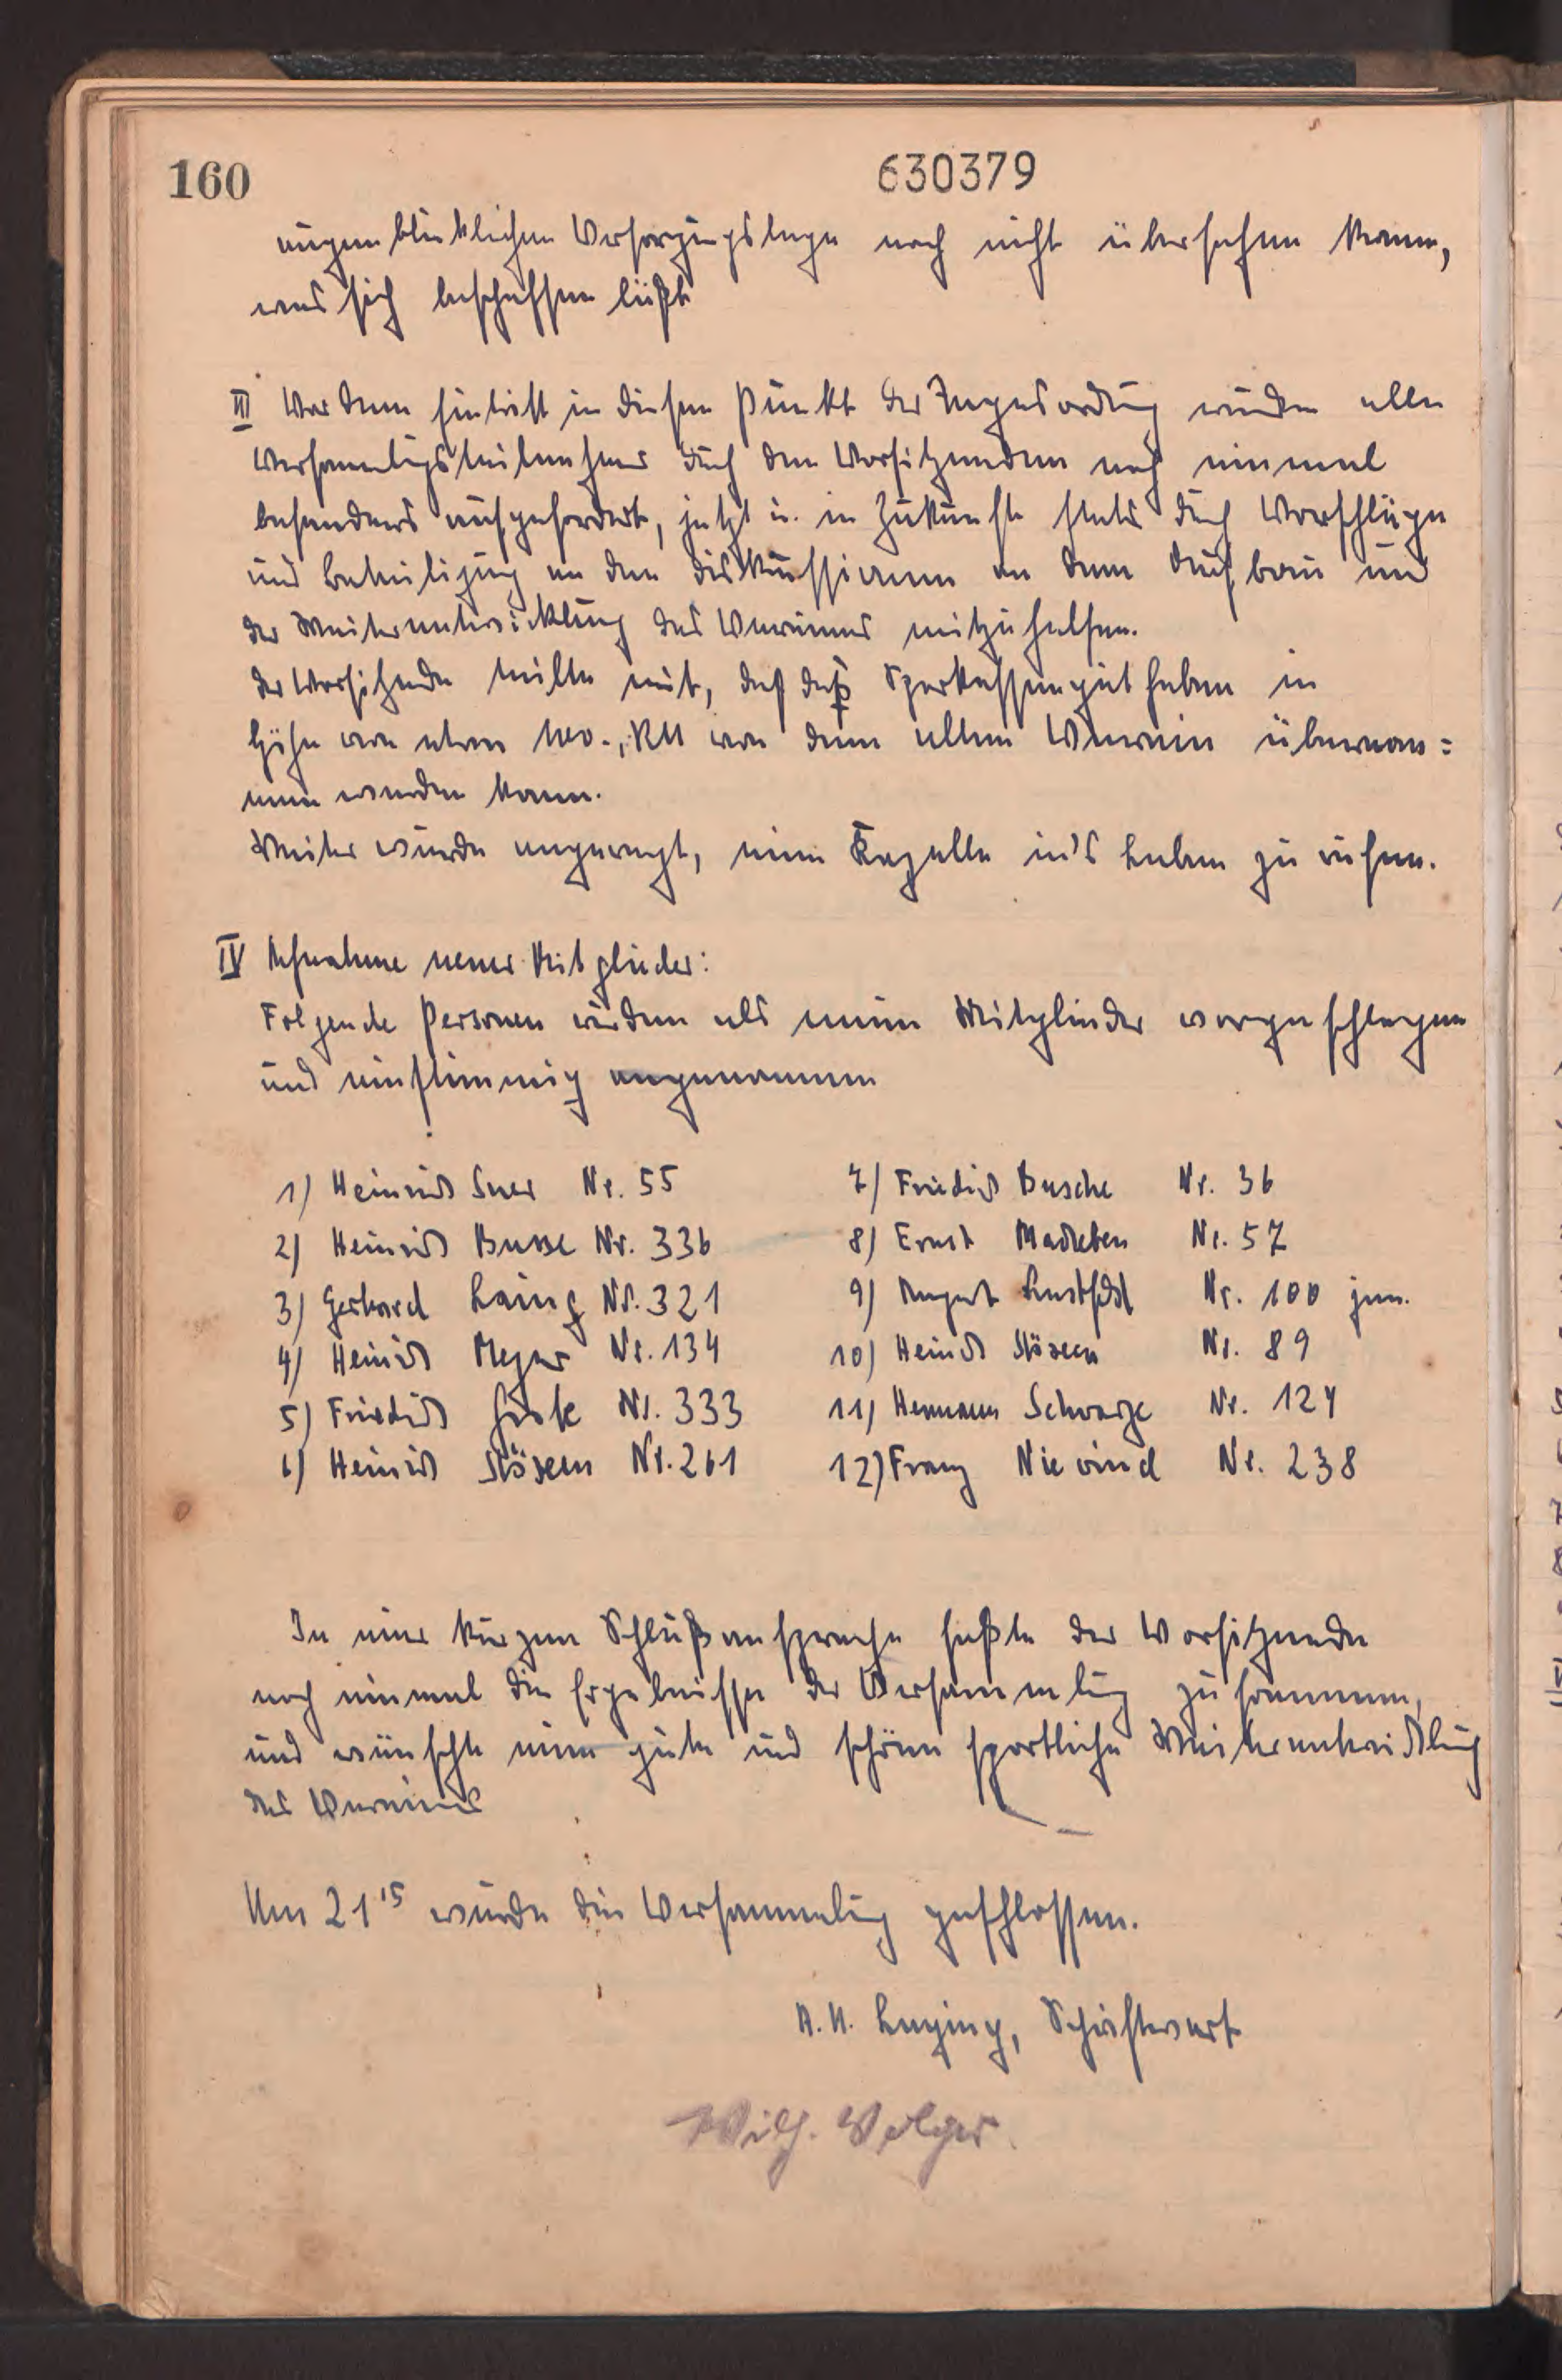 160
630379
augenblicklichen Versorgungslage noch nicht übersehen kann,
was sich beschaffen läßt
III Vor dem Eintritt in diesen Punkt der Tagesordnung wurden alle
Versammlungsteilnehmer durch den Vorsitzenden noch einmal
besonders aufgefordert, jetzt u. in Zukunft stets durch Vorschläge
und Beteiligung an den Diskussionen an dem Aufbau und
der Weiterentwicklung des Vereines mitzuhelfen.
Der Vorsitzende teilte mit, daß das Sparkassenguthaben in
Höhe von etwa RM von dem alten Verein übernom=
men werden kann.
Weiter wurde angeregt, eine Kapelle in's Leben zu rufen.
IV Aufnahme neuer Mitglieder:
Folgende Personen wurden als neue Mitglieder vorgeschlagen
und einstimmig angenommen
1) Heinrich Nr. 55
2) Heinrich Busse Nr. 336
3) Gerhard Nr. 321
4) Heinrich Meyer Nr. 134
5) Friedrich Nr. 333
6) Heinrich Nr. 261
7) Friedrich Busche Nr. 36
8) Ernst Nr. 57
9) August Nr. 100 jun.
10) Heinrich Nr. 89
11) Hermann Schwarze Nr. 124
12) Franz Nr. 238
In einer kurzen Schlußansprache faßte der Vorsitzende
noch einmal die Ergebnisse der Versammlung zusammen,
und wünschte eine gute und schöne sportliche Weiterentwicklung
des Vereines
Um 21 15 wurde die Versammlung geschlossen.
Schriftwart
Wilh. Volger.